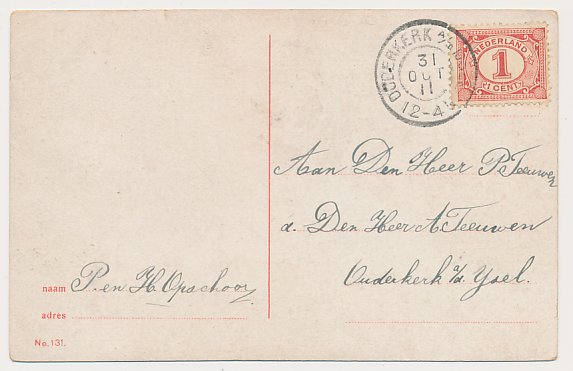 OUDERKERK A/D IJSEL
31
OCT
11
12-4N
NEDERLAND
1
1 CENT
Aan Den Heer P Teeuwen
d. Den Heer A Teeuwen
Ouderkerk a/d. Ysel.
naam P. en H. Opschoor
adres
No. 131.